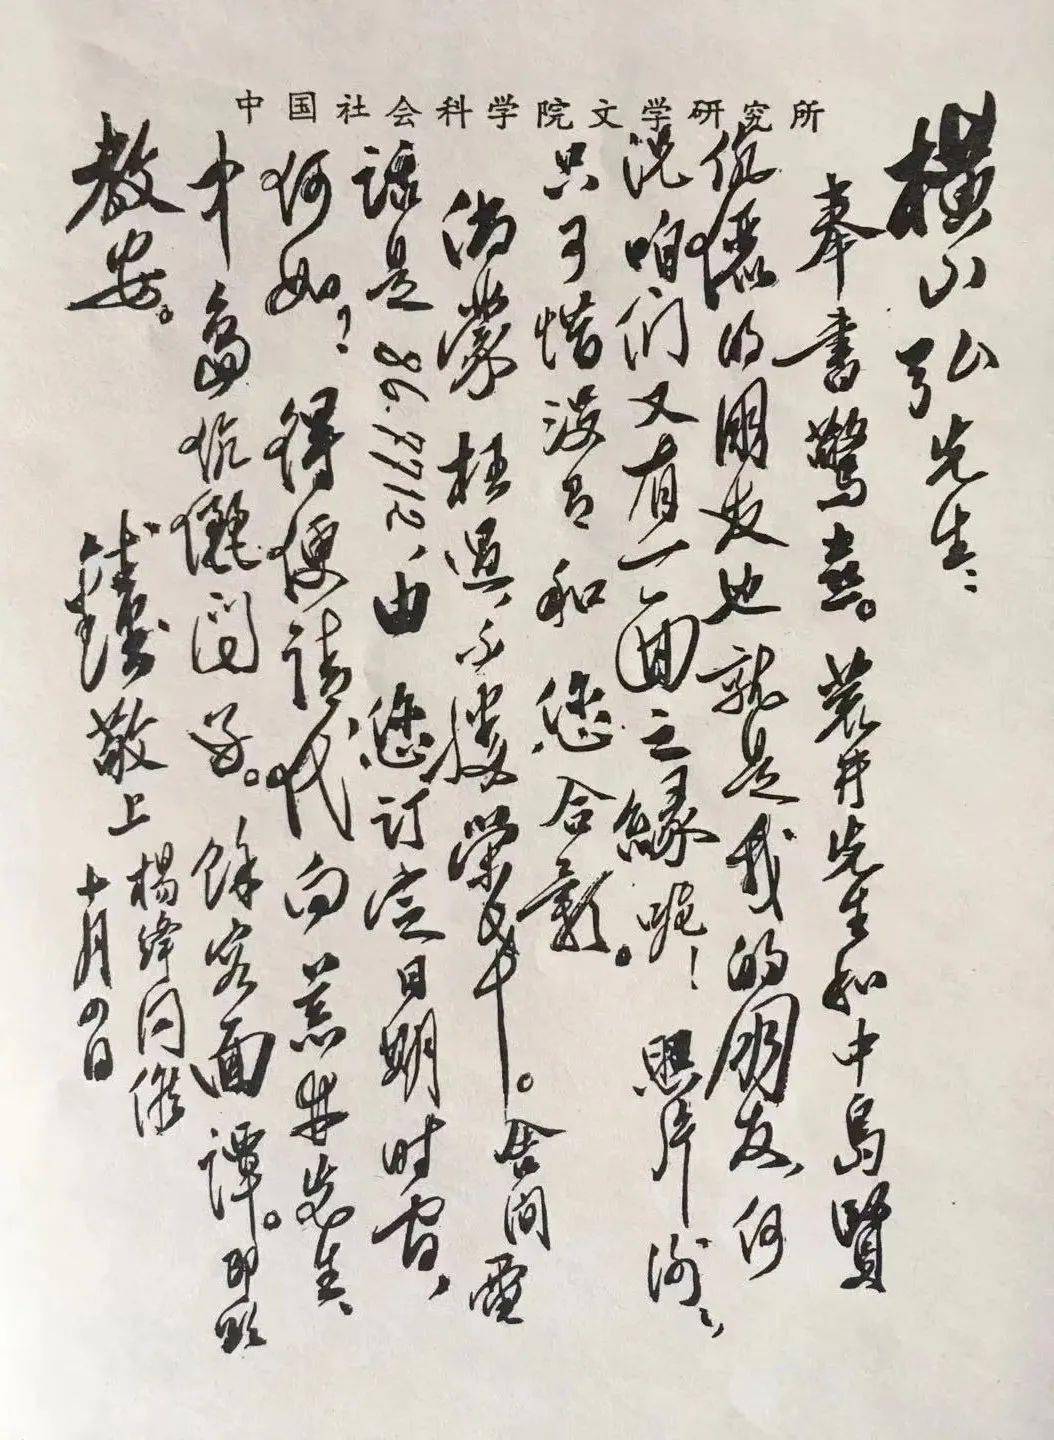 中国社会科学院文学研究所
横山弘先生：
奉书惊喜。荒井先生和中岛贤
伉俪的朋友也就是我的朋友，何
况咱们又有一面之缘呢！照片谢谢，
只可惜没有和您合影。
倘蒙枉过，不胜荣幸。舍间电
话是86.7712，由您订定日期时间，
何如？得便请代向荒井先生、
中岛伉俪问好。馀容面谭。即颂
教安。
钱锺书敬上 杨绛同候
十月四日